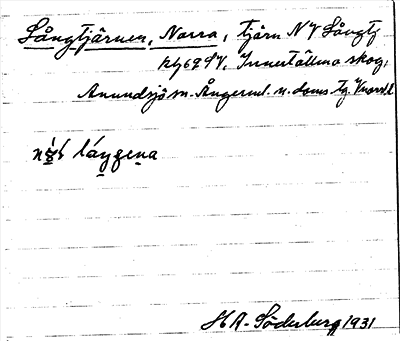 Långtjärnen, Norra, tjärn NV Långtj
Hj69SV, Innertällmo skog,
Anundsjö sn. Ångerml. n. doms tg. Vnorrl. l
láŋgena
HA-Söderberg 1931